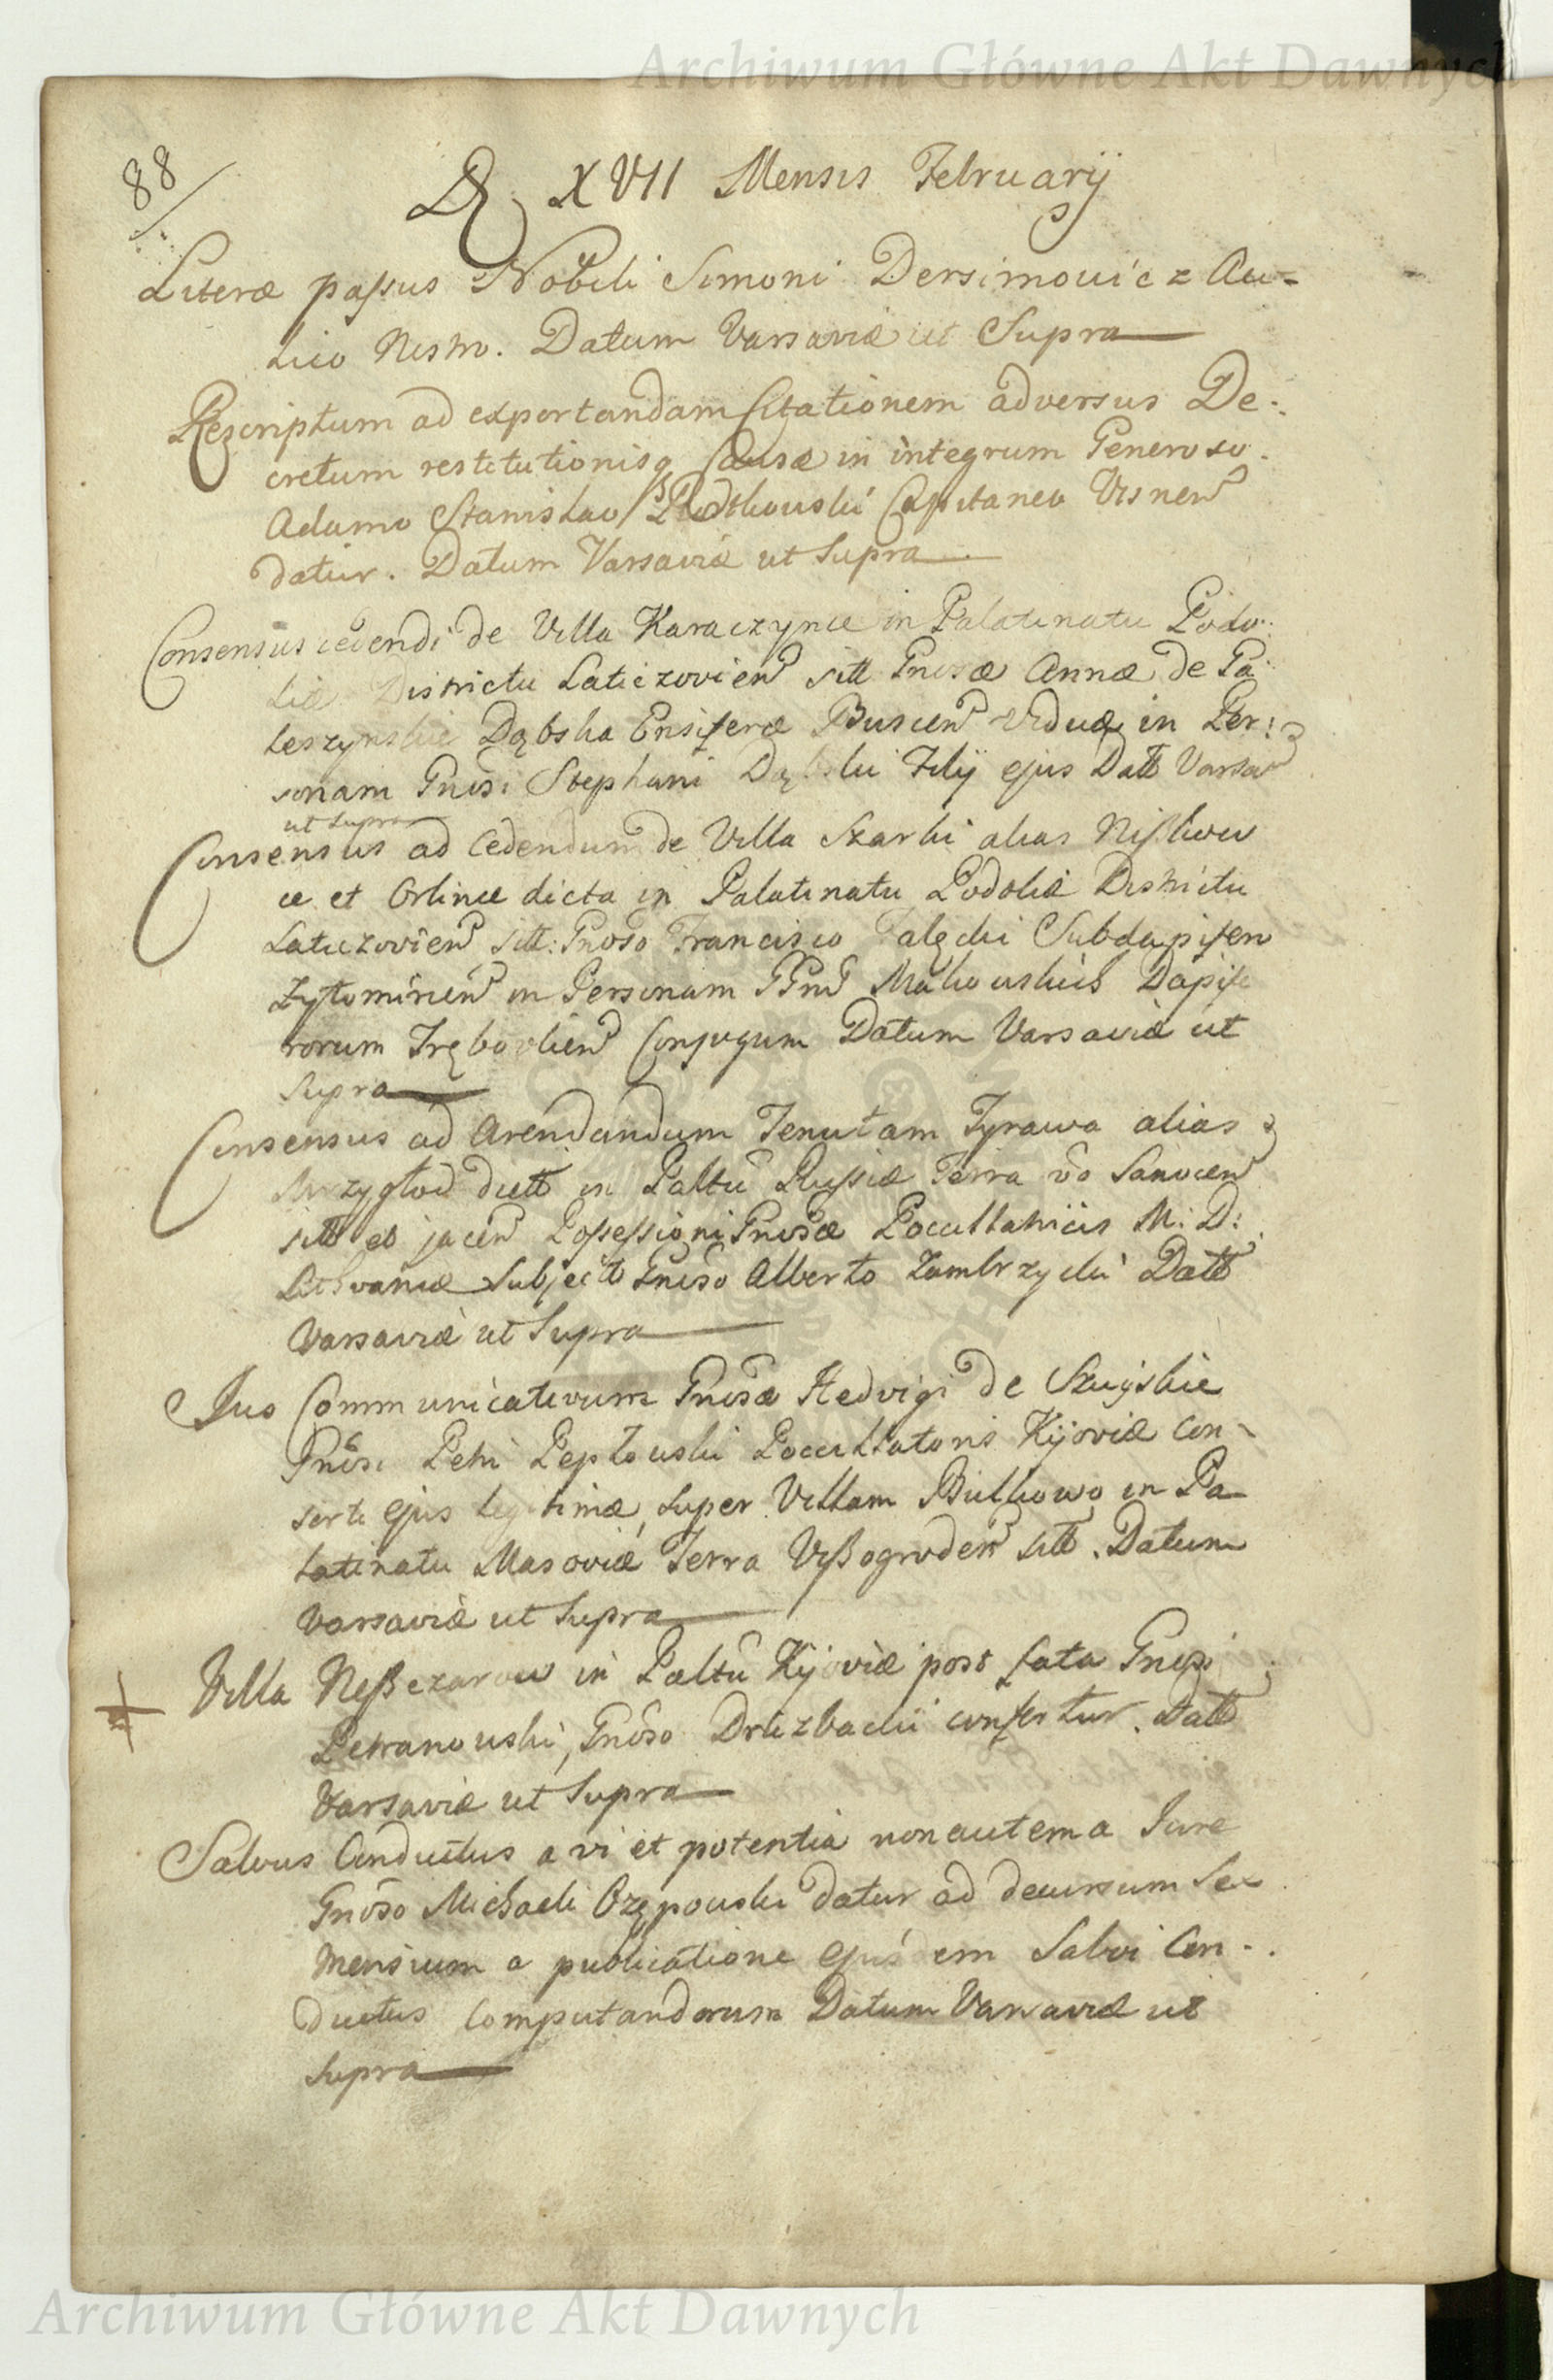 Archiwum Główne Akt Dawnych
88
D XVII Mensis Februarij
Literæ passus Nobili Simoni Dersimowicz Au-
lico Nostro. Datum Varsaviæ ut Supra
Rescriptum ad exportandam Citationem adversus De-
cretum restitutionisq Causæ in integrum Generoso
Adamo Stanislao Capitaneo Visnen
datur. Datum Varsaviæ ut Supra
Consensus cedendi de Villa Karaczynce in Palatinatu Podo-
liæ Districtu Laticzovien sitt Gnosæ Annæ de Pa
leszynskie Dąbska Ensiferæ Buscen Viduæ in Per:
sonam Gnosi Stephani Dąbski Filij ejus Datt Varsav
ut Supra
Consensus ad Cedendum de Villa Skarki alias
ce et Orlince dicta in Palatinatu Podoliæ Districtu
Laticzovien sitt: Gnoso Francisco Załęcki Subdapifero
Zytomirien in Personam GGnd Makowskich Dapife
rorum Trębovlien Conjugum Datum Varsaviæ ut
Supra
Consensus ad Arendandum Tenutam Tyrawa alias
Mrzygłod dictt in Paltu Russiæ Terra vo Sanocen
sitt et jacen Possessioni Gnosæ Pocillatricis M: D:
Lithvaniæ Subject Gnoso Alberto Zambrzycki Datt
Varsaviæ ut Supra
Jus Communicativum Gnosæ Hedvigi de Skuyskie
Gnosi Petri Łeptowski Pocillatoris Kijoviæ Con-
sorti ejus legitimæ, super Villam Bulkowo in Pa
latinatu Masoviæ Terra Vyßogroden sitt. Datum
Varsaviæ ut Supra
Villa in Paltu Kijoviæ post fata Gnosi
Petranowski, Gnoso Druzbacki confertur. Datt
Varsaviæ ut Supra
Salvus Conductus a vi et potentia non autem a Jure
Gnoso Michaeli Ozępowski datur ad decursum Sex
Mensium a publicatione ejusdem Salvi Con-
ductus computandorum Datum Varsaviæ ut
Supra
Archiwum Główne Akt Dawnych